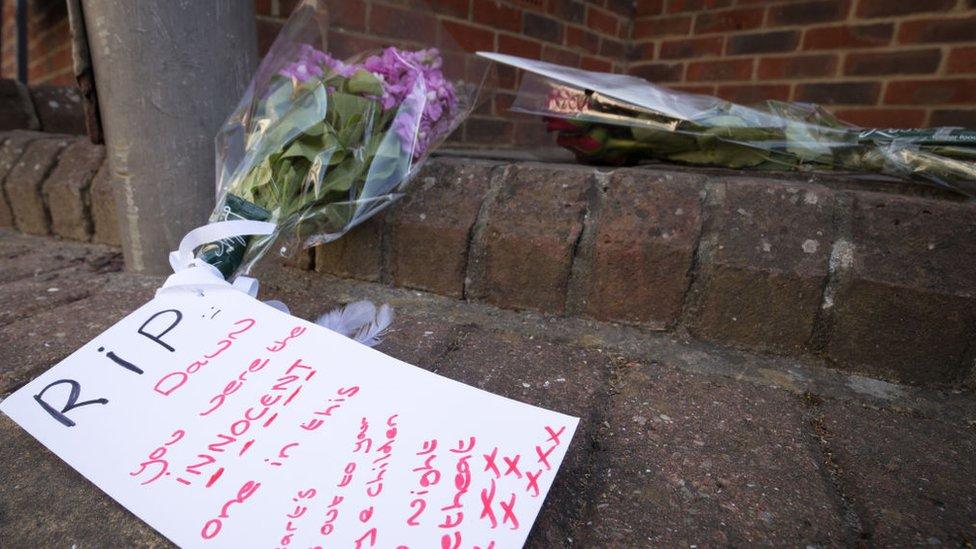 RiP :(
Dawn
you were the
INNOCENT
one in this
out to your
children
Night
x x x
x x x